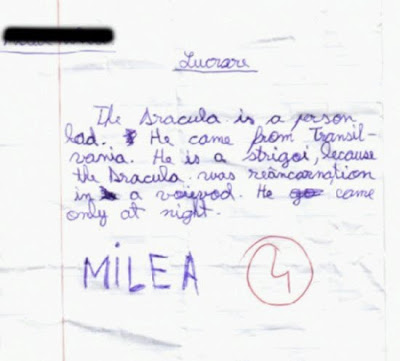 Lucrare
The Dracula is a person
bad. He came from Transil-
vania. He is a strigoi, because
the Dracula was reâncarnation
in a voievod. He came
only at night.
MiLEA